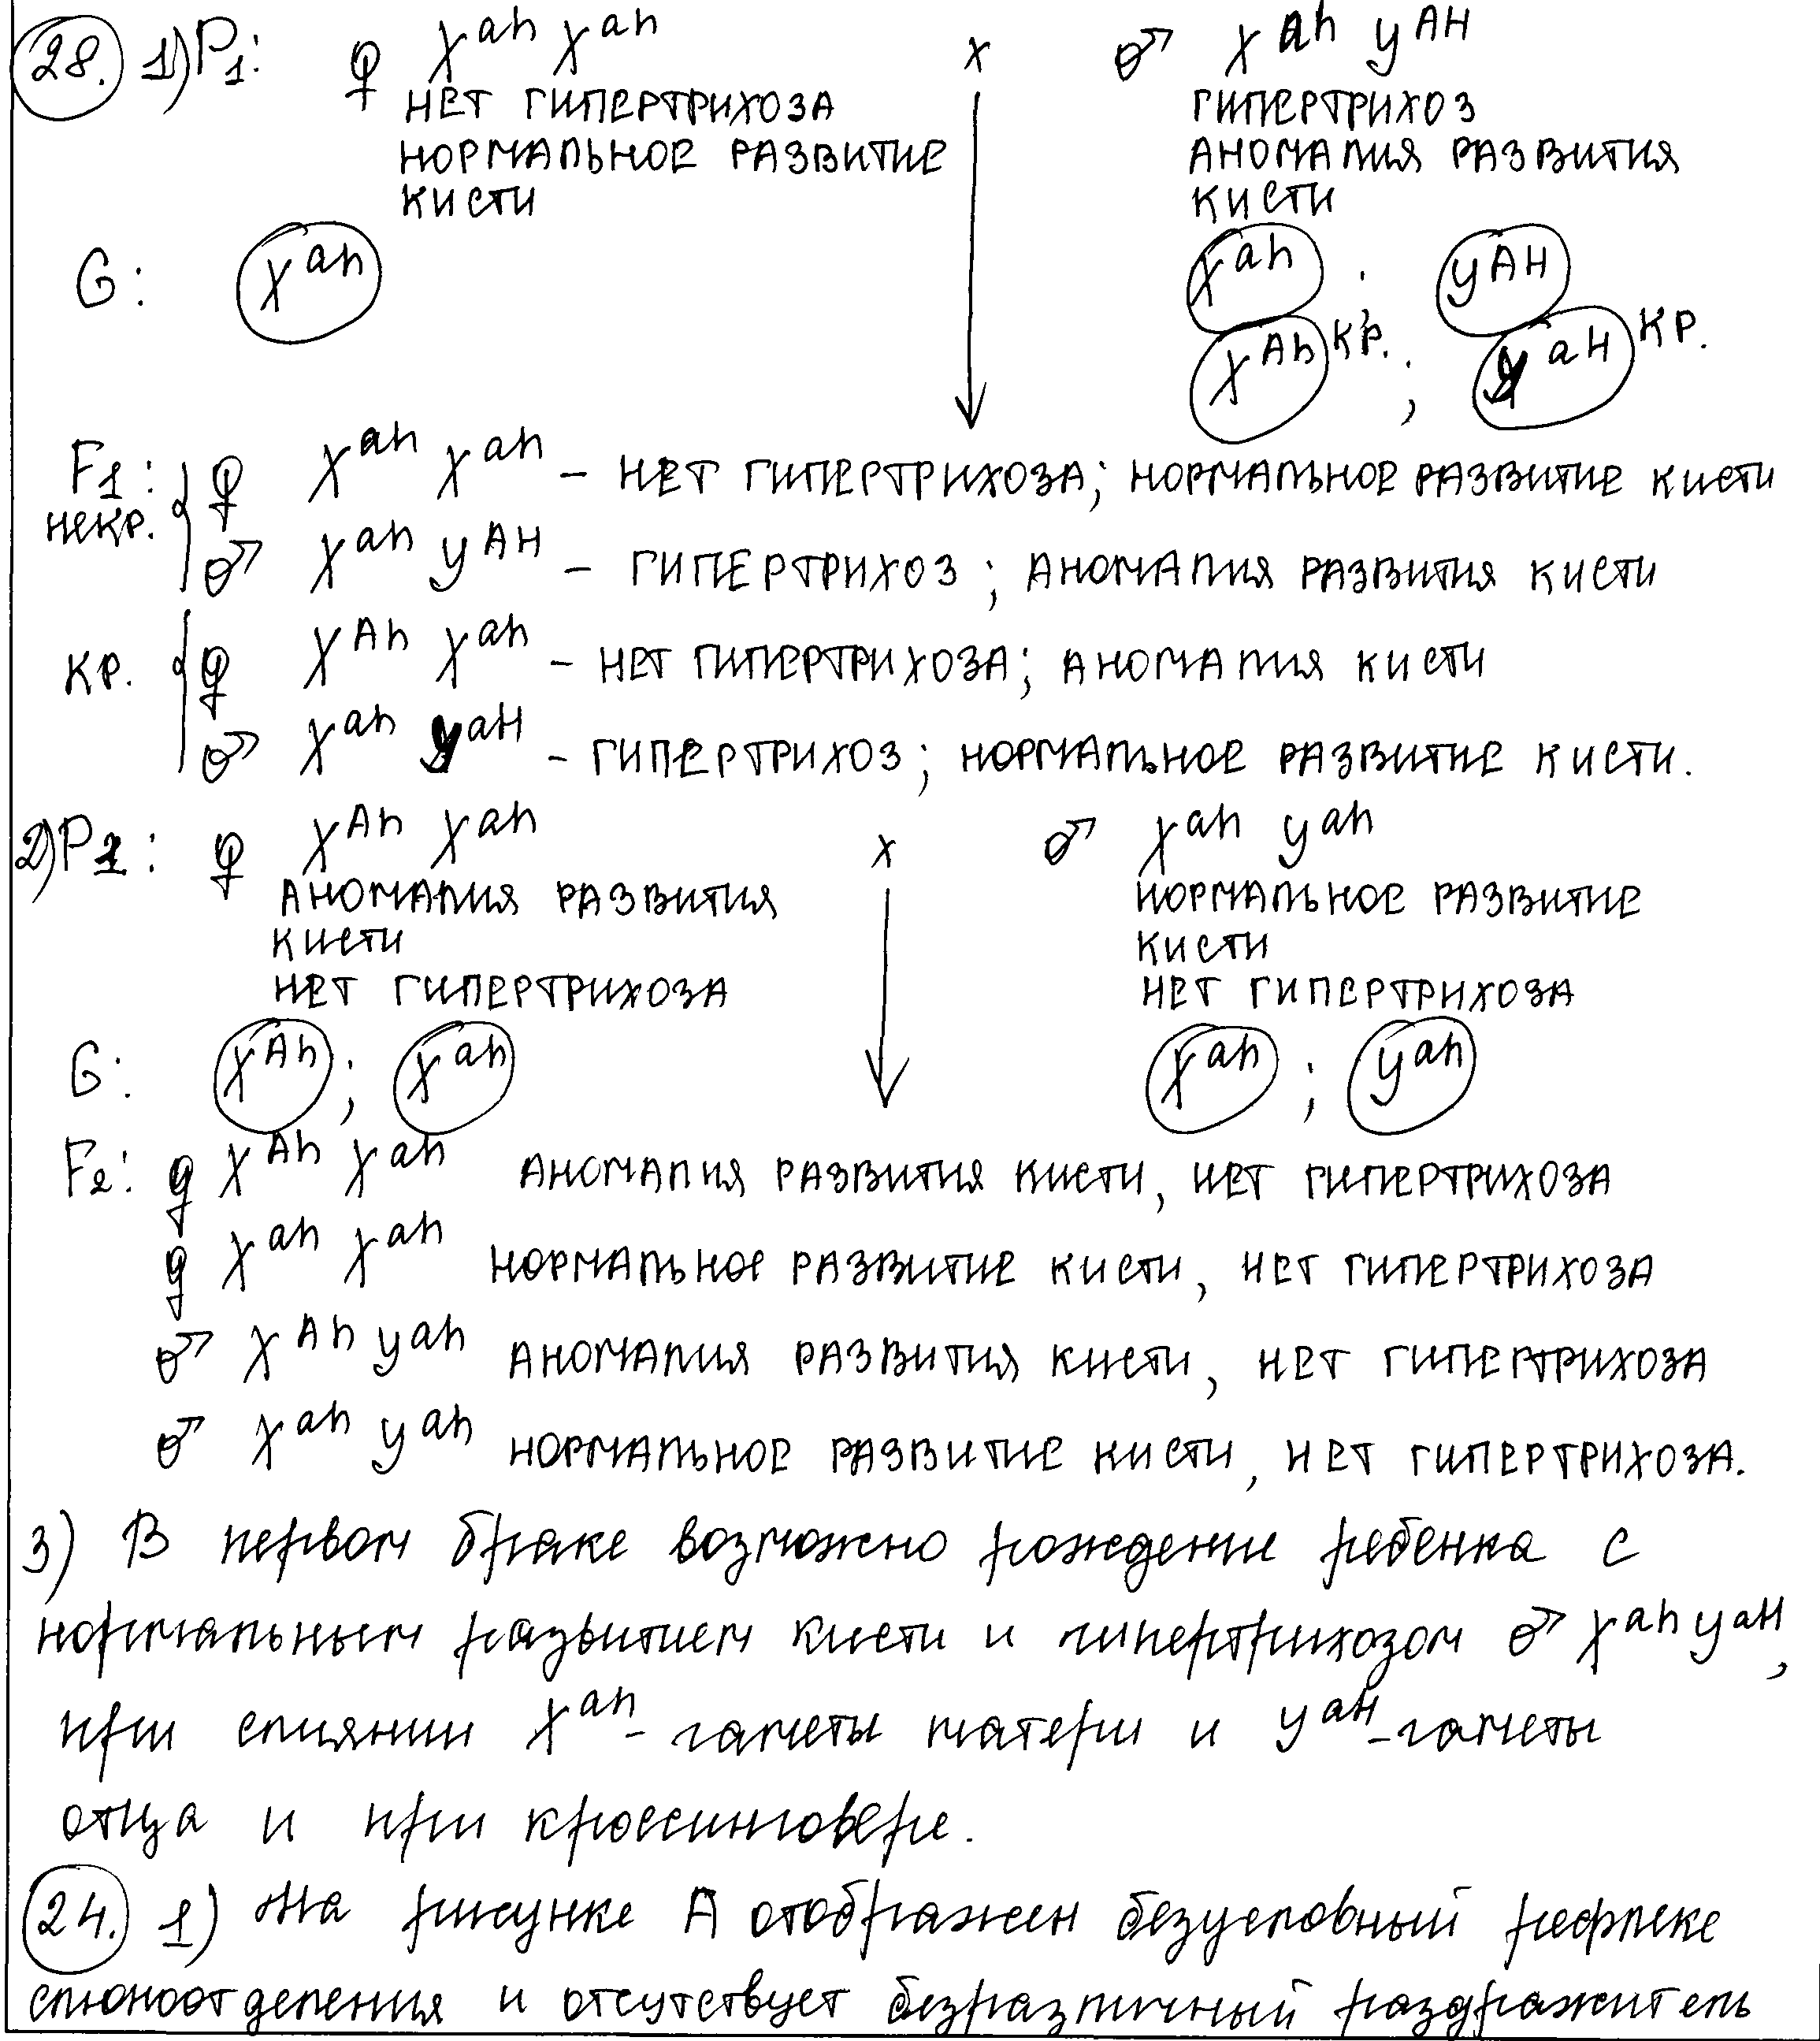 28. 1) P1: ♀ X^ah X^ah × ♂ X^ah Y^AH
НЕТ ГИПЕРТРИХОЗА ГИПЕРТРИХОЗ
НОРМАЛЬНОЕ РАЗВИТИЕ АНОМАЛИЯ РАЗВИТИЯ
КИСТИ КИСТИ
G: X^ah X^ah ; Y^AH
X^Ah кр. ; Y^aH кр.
F1: ♀ X^ah X^ah – НЕТ ГИПЕРТРИХОЗА; НОРМАЛЬНОЕ РАЗВИТИЕ КИСТИ
некр. ♂ X^ah Y^AH – ГИПЕРТРИХОЗ; АНОМАЛИЯ РАЗВИТИЯ КИСТИ
кр. ♀ X^Ah X^ah – НЕТ ГИПЕРТРИХОЗА; АНОМАЛИЯ КИСТИ
♂ X^ah Y^aH – ГИПЕРТРИХОЗ; НОРМАЛЬНОЕ РАЗВИТИЕ КИСТИ.
2) P2: ♀ X^Ah X^ah × ♂ X^ah Y^ah
АНОМАЛИЯ РАЗВИТИЯ НОРМАЛЬНОЕ РАЗВИТИЕ
КИСТИ КИСТИ
НЕТ ГИПЕРТРИХОЗА НЕТ ГИПЕРТРИХОЗА
G: X^Ah ; X^ah X^ah ; Y^ah
F2: ♀ X^Ah X^ah АНОМАЛИЯ РАЗВИТИЯ КИСТИ, НЕТ ГИПЕРТРИХОЗА
♀ X^ah X^ah НОРМАЛЬНОЕ РАЗВИТИЕ КИСТИ, НЕТ ГИПЕРТРИХОЗА
♂ X^Ah Y^ah АНОМАЛИЯ РАЗВИТИЯ КИСТИ, НЕТ ГИПЕРТРИХОЗА
♂ X^ah Y^ah НОРМАЛЬНОЕ РАЗВИТИЕ КИСТИ, НЕТ ГИПЕРТРИХОЗА.
3) В первом браке возможно рождение ребенка с
нормальным развитием кисти и гипертрихозом ♂ X^ah Y^aH,
при слиянии X^ah - гаметы матери и Y^aH - гаметы
отца и при кроссинговере.
24. 1) На рисунке А отображен безусловный рефлекс
слюноотделения и отсутствует безразличный раздражитель